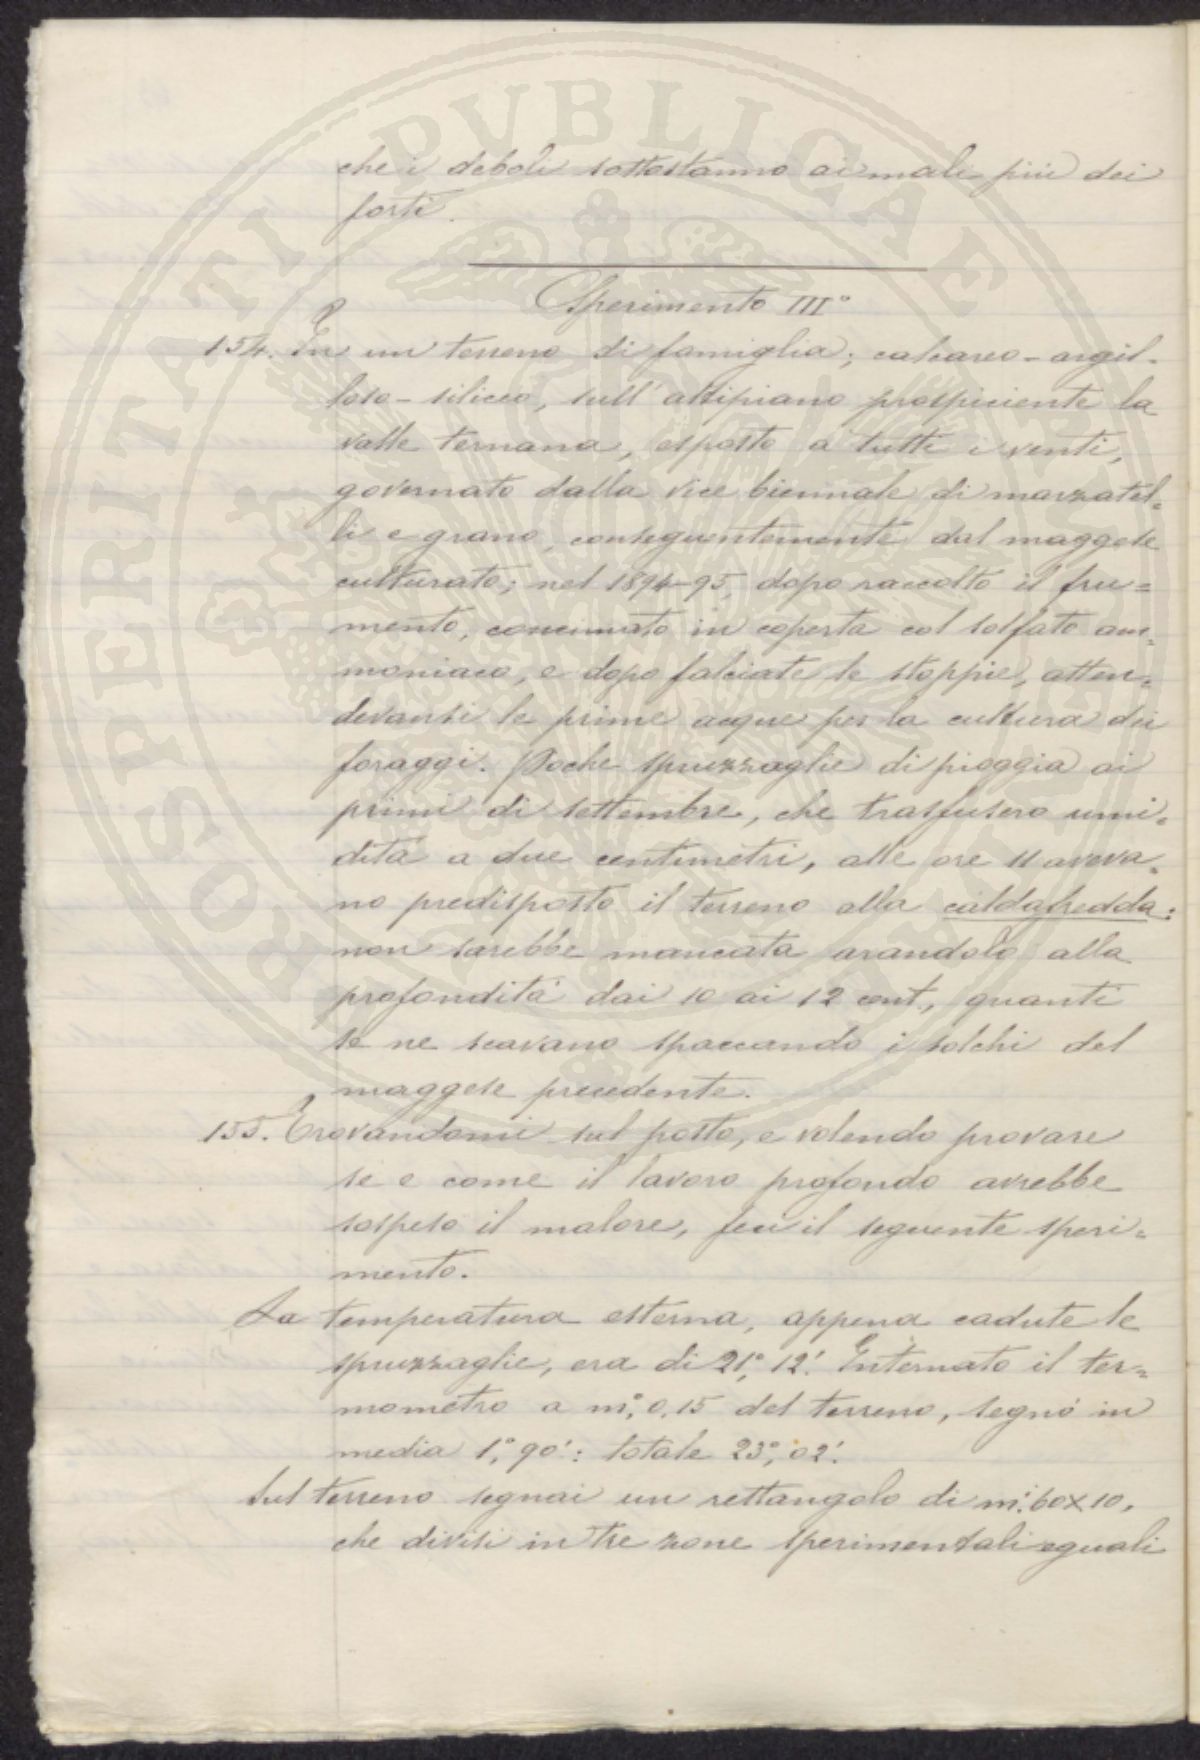 che i deboli sottostanno ai mali più dei
forti.
Sperimento III°
154. In un terreno di famiglia; calcareo-argil-
loso-siliceo, sull'altipiano prospiciente la
valle ternana, esposto a tutti i venti,
governato dalla vice biennale di marzatel=
li e grano, conseguentemente dal maggese
culturato; nel 1894-95, dopo raccolto il fru=
mento, concimato in coperta col solfato am=
moniaco, e dopo falciate le stoppie, atten=
devansi le prime acque per la cultura dei
foraggi. Poche spruzzaglie di pioggia ai
primi di settembre, che trasfusero umi=
dità a due centimetri, alle ore 11 aveva=
no predisposto il terreno alla caldafredda:
non sarebbe mancata arandolo alla
profondità dai 10 ai 12 cent., quanti
se ne scavano spaccando i solchi del
maggese precedente.
155. Trovandomi sul posto, e volendo provare
se e come il lavoro profondo avrebbe
sospeso il malore, feci il seguente speri=
mento.
La temperatura esterna, appena cadute le
spruzzaglie, era di 21°, 12'. Internato il ter=
mometro a m°, 0.15 del terreno, segnò in
media 1°, 90': totale 23°, 02'.
Sul terreno segnai un rettangolo di mi. 60x10,
che divisi in tre zone sperimentali eguali
PROSPERITATI PVBLICAE